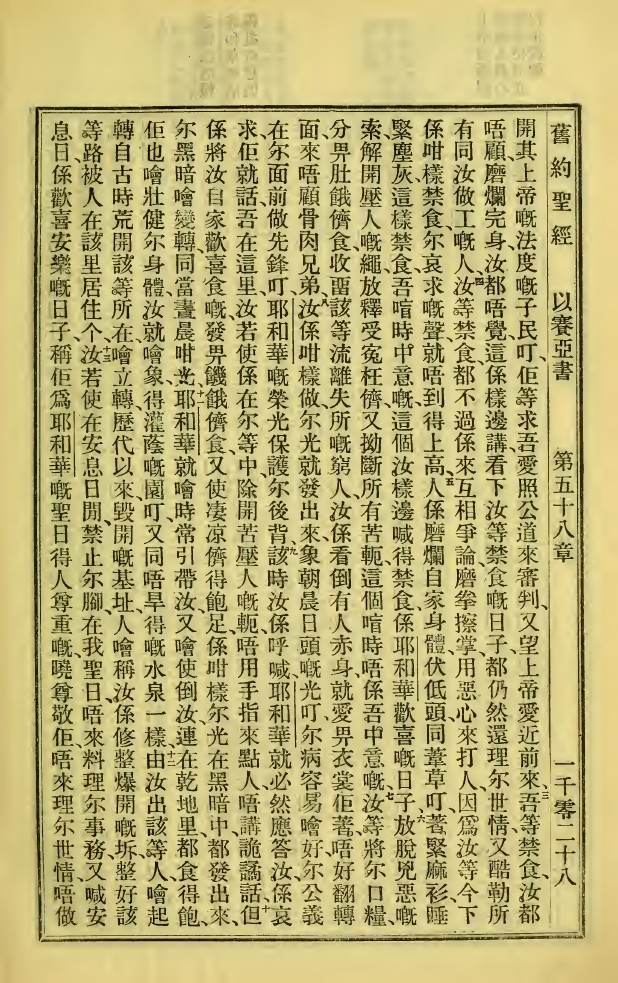 舊約聖經 以賽亞書 第五十八章 一千零二十八
開其上帝嘅法度嘅子民叮、佢等求吾愛照公道來審判、又望上帝愛近前來、三吾等禁食、汝都
唔顧、磨爛完身、汝都唔覺、這係樣邊講、看下汝等禁食嘅日子、都仍然還理尔世情、又酷勒所
有同汝做工嘅人、四汝等禁食、都不過係來互相爭論、磨拳擦掌、用惡心來打人、因爲汝等今下
係咁樣禁食、尔哀求嘅聲、就唔到得上高、五人係磨爛自家身體、伏低頭同葦草叮、著緊麻衫、睡
緊塵灰、這樣禁食、吾喑時中意嘅、這個汝樣邊喊得禁食、係耶和華歡喜嘅日子、六放脫兇惡嘅
索、解開壓人嘅繩、放釋受寃枉儕、又拗斷所有苦軛、這個喑時唔係吾中意嘅、七汝等將尔口糧、
分畀肚餓儕食、收畱該等流離失所嘅窮人、汝係看倒有人赤身、就愛畀衣裳佢著、唔好翻轉
面來唔顧骨肉兄弟、八汝係咁樣做、尔光就發出來、象朝晨日頭嘅光叮、尔病容易噲好、尔公義
在尔面前做先鋒叮、耶和華嘅榮光保護尔後背、九該時汝係呼喊、耶和華就必然應答汝、係哀
求佢、就話、吾在這里、汝若使係在尔等中、除開苦壓人嘅軛、唔用手指來點人、唔講詭譎話、十但
係將汝自家歡喜食嘅、發畀饑餓儕食、又使凄凉儕得飽足、係咁樣尔光在黑暗中都發出來、
尔黑暗噲變轉同當晝晨咁光、十一耶和華就噲時常引帶汝、又噲使倒汝、連在乾地里都食得飽、
佢也噲壯健尔身體、汝就噲象得灌蔭嘅園叮、又同唔旱得嘅水泉一樣、十二由汝出該等人、噲起
轉自古時荒開該等所在、噲立轉歷代以來毀開嘅基址、人噲稱汝係修整爆開嘅坼、整好該
等路、被人在該里居住个、十三汝若使在安息日閒、禁止尔腳、在我聖日、唔來料理尔事務、又喊安
息日係歡喜安樂嘅日子、稱佢爲耶和華嘅聖日、得人尊重嘅、曉尊敬佢、唔來理尔世情、唔做